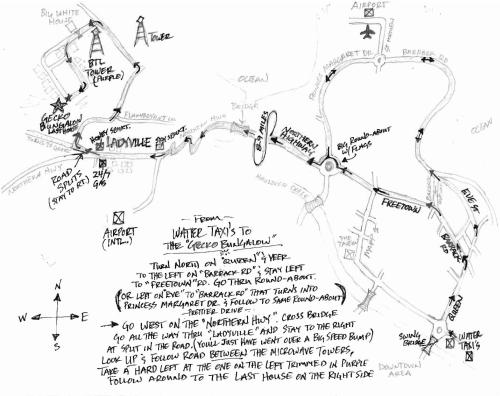 BIG WHITE
HOUSE
TOWER
BTL
TOWER
(PURPLE)
GECKO
BUNGALOW
LAST HOUSE
LADYVILLE
ROAD
SPLITS
(STAY TO RT.)
24/7
GAS
AIRPORT
(INT'L.)
NORTHERN HWY
OCEAN
BRIDGE
BIG AXLES
NORTHERN
HIGHWAY
AIRPORT
PRINCESS MARGARET DR.
BARRACK RD
OCEAN
BIG ROUND-ABOUT
/ FLAGS
FREETOWN
EVE ST
BARRACK
RD
QUEEN
SWING
BRIDGE
WATER
TAXI'S
DOWNTOWN
AREA
N
W
E
S
- FROM -
WATER TAXI'S TO
THE "GECKO BUNGALOW"
TURN NORTH ON "QUEEN" & VEER
TO THE LEFT ON "BARRACK RD" & STAY LEFT
TO "FREETOWN" RD. GO THRU ROUND-ABOUT.
(OR LEFT ON "EVE" TO "BARRACK RD" THAT TURNS INTO
PRINCESS MARGARET DR. & FOLLOW TO SAME ROUND-ABOUT)
- PRETTIER DRIVE -
GO WEST ON THE "NORTHERN HWY". CROSS BRIDGE
GO ALL THE WAY THRU "LADYVILLE" AND STAY TO THE RIGHT
AT SPLIT IN THE ROAD. (YOU'LL JUST HAVE WENT OVER A BIG SPEED BUMP)
LOOK UP & FOLLOW ROAD BETWEEN THE MICROWAVE TOWERS,
TAKE A HARD LEFT AT THE ONE ON THE LEFT TRIMMED IN PURPLE
FOLLOW AROUND TO THE LAST HOUSE ON THE RIGHT SIDE